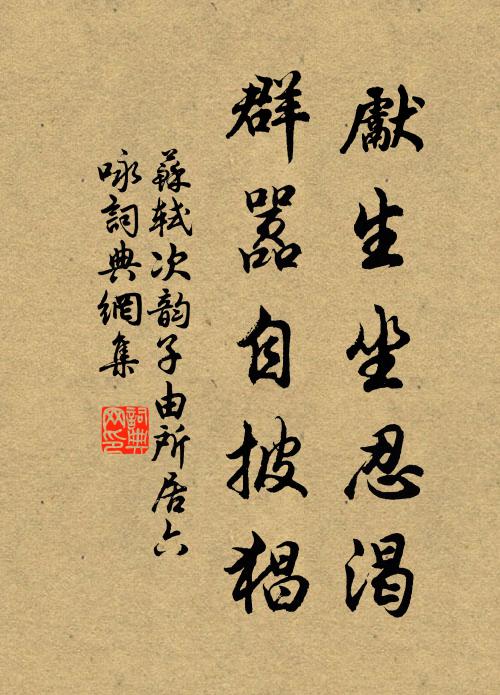 獻生坐忍渴
群嚣自披猖
蘇軾次韵子由所居六
咏詞典網集
詞典
网印